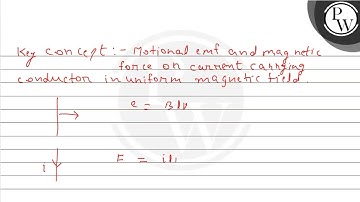 Key concept :- Motional emf and magnetic
force on current carrying
conductor in uniform magnetic field.
e = Blv
i
F = il
PW